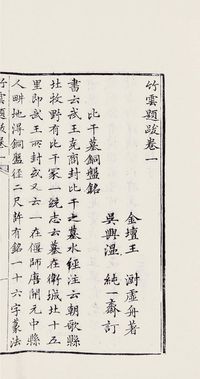 竹雲題跋卷一
金壇王　澍虛舟著
吳興溫　純一齋訂
比干墓銅盤銘
書云武王克商封比干之墓水經注云朝歌縣
北牧野有比干冢一統志云墓在衛城北十五
里即武王所封或又云一在偃師唐開元中縣
人畊地得銅盤徑二尺餘有銘一十六字篆法
竹雲題跋卷一